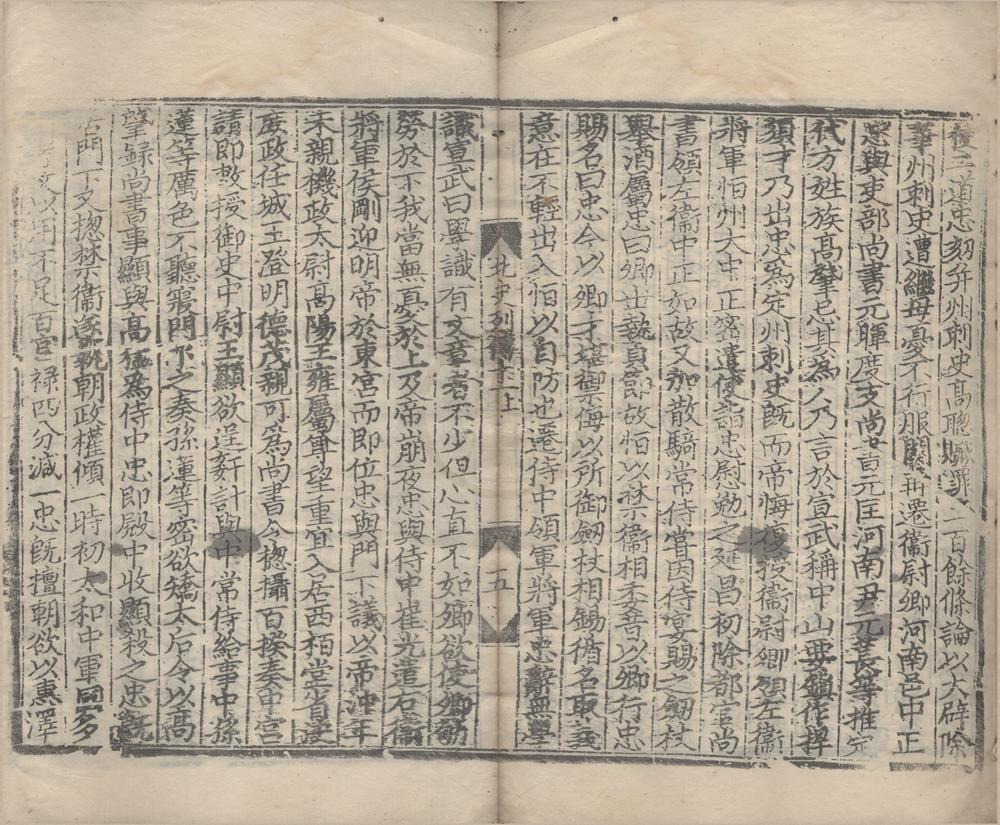 二道忠劾并州刺史高聰贓罪二百餘條論以大辟除
華州刺史遭繼母憂不行服闋再遷衛尉卿河南邑中正
忠與吏部尚書元暉度支尚書元匡河南尹元萇等推定
代方姓族高肇忌其為人乃言於宣武稱中山要鎮作捍
須才乃出忠為定州刺史既而帝悔復授衛尉卿領左衛
將軍恒州大中正密遣使詣忠慰勉之延昌初除都官尚
書領左衛中正如故又加散騎常侍嘗因侍宴賜之劒杖
舉酒屬忠曰卿世執貞節故恒以禁衛相委昔以卿行忠
賜名曰忠今以卿才堪禦侮以所御劒杖相錫循名取義
意在不輕出入恒以自防也遷侍中領軍將軍忠辭無學
北史列傳十一上
五
識宣武曰學識有文章者不少但心直不如卿欲使卿劬
勞於下我當無憂於上及帝崩夜忠與侍中崔光遣右衛
將軍侯剛迎明帝於東宮而即位忠與門下議以帝沖年
未親機政太尉高陽王雍屬尊望重宜入居西柏堂省決
庶政任城王澄明德茂親可為尚書令揔攝百揆奏中宮
請即敕授御史中尉王顯欲逞姧計與中常侍給事中孫
蓮等厲色不聽寢門下之奏孫蓮等密欲矯太后令以高
肇録尚書事顯與高猛為侍中忠即殿中收顯殺之忠既
居門下又揔禁衛遂執朝政權傾一時初太和中軍國多
以用不足百官祿四分減一忠既擅朝欲以惠澤